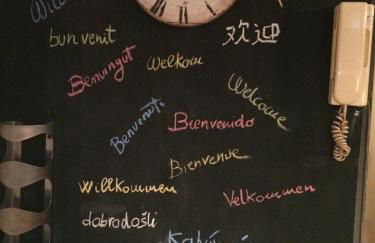 bun venit
欢迎
Benvingut
Welkom
Welcome
Benvenuti
Bienvenido
Bienvenue
Willkommen
Velkommen
dobrodošli